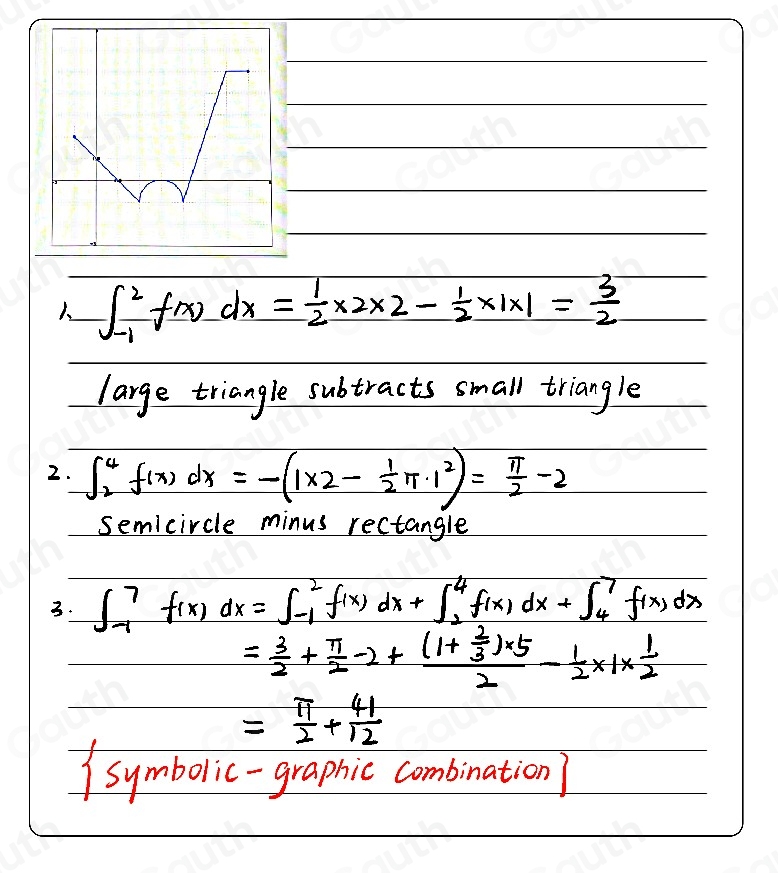 1. ∫_{-1}^{2} f(x) dx = 1/2 × 2 × 2 − 1/2 × 1 × 1 = 3/2
large triangle subtracts small triangle
2. ∫_{2}^{4} f(x) dx = −(1×2 − 1/2 π·1²) = π/2 − 2
Semicircle minus rectangle
3. ∫_{-1}^{7} f(x) dx = ∫_{-1}^{2} f(x) dx + ∫_{2}^{4} f(x) dx + ∫_{4}^{7} f(x) dx
= 3/2 + π/2 − 2 + (1 + 2/3)×5/2 − 1/2 × 1 × 1/2
= π/2 + 41/12
{symbolic-graphic combination}
Gauth